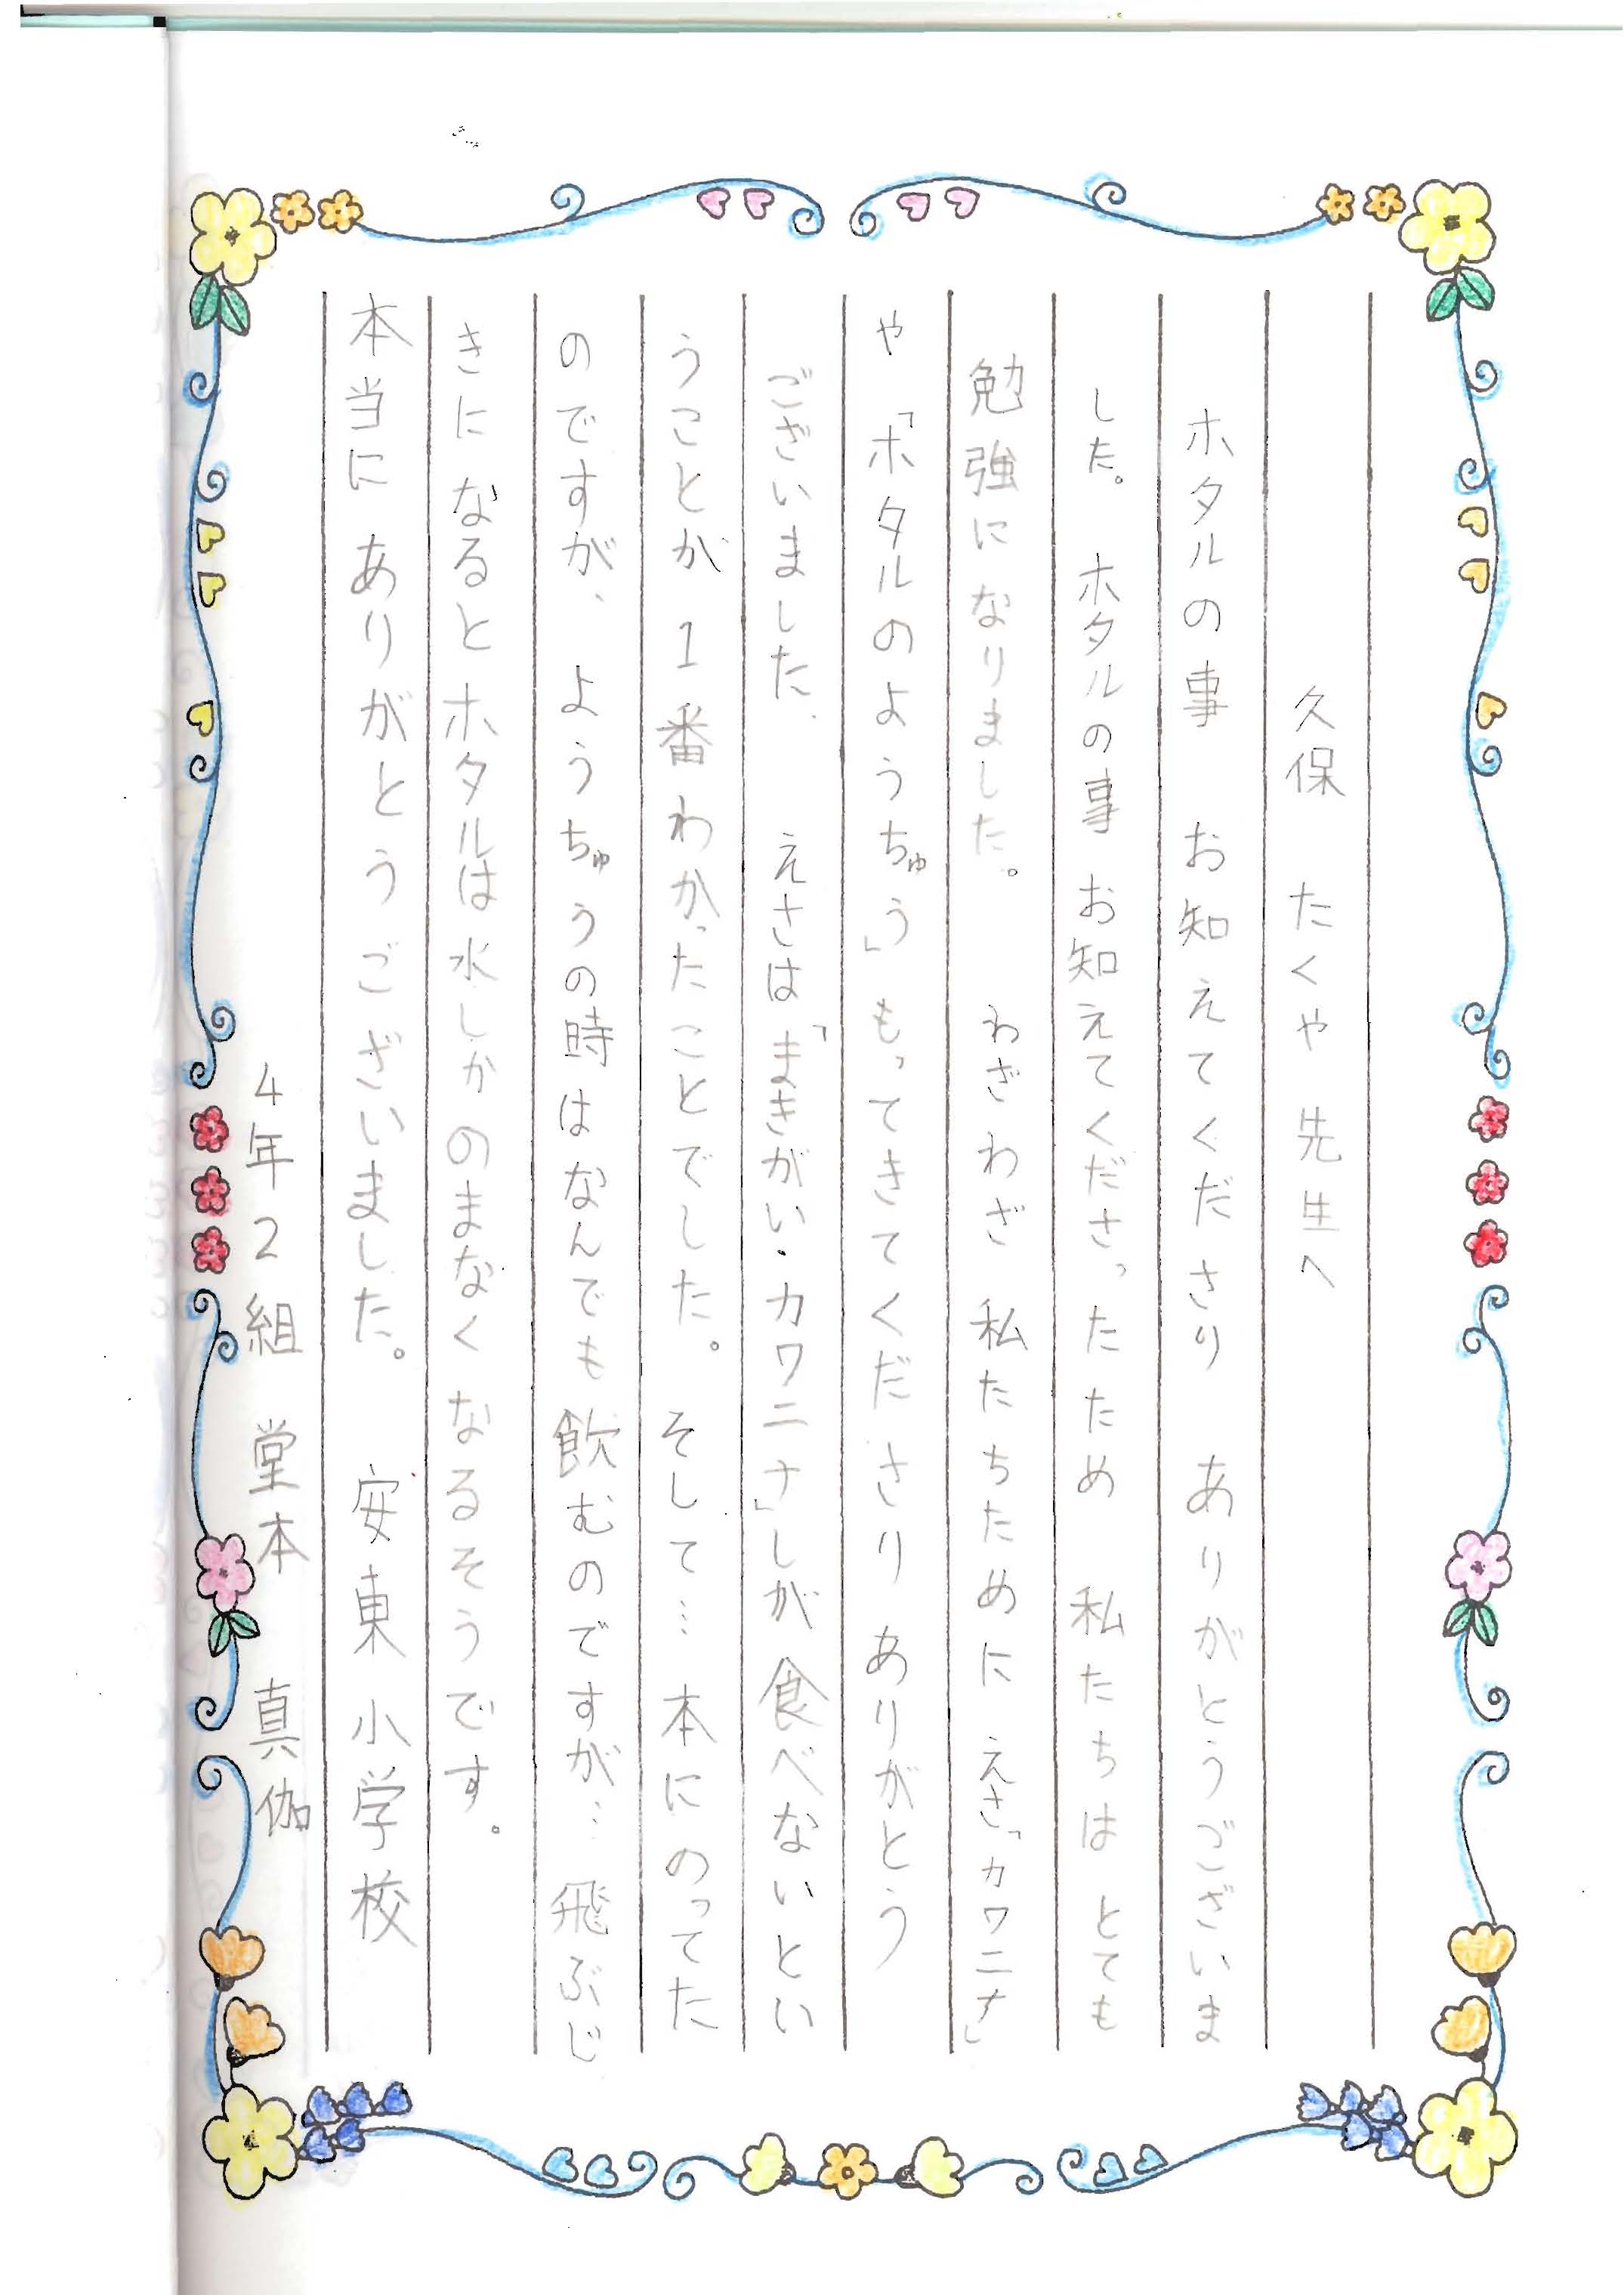 久保 たくや 先生へ
ホタルの事 お知えてくださり ありがとうございま
した。 ホタルの事 お知えてくださったため 私たちは とても
勉強になりました。 わざわざ 私たちために えさ「カワニナ」
や「ホタルのようちゅう」もってきてくださり ありがとう
ございました、 えさは「まきがい・カワニナ」しが 食べないとい
うことが 1番わかったことでした。 そして… 本にのってた
のですが、 ようちゅうの時はなんでも飲むのですが… 飛ぶじ
きになると ホタルは水しか のまなくなるそうです。
本当に ありがとうございました。 安東小学校
4年2組 堂本 真伽